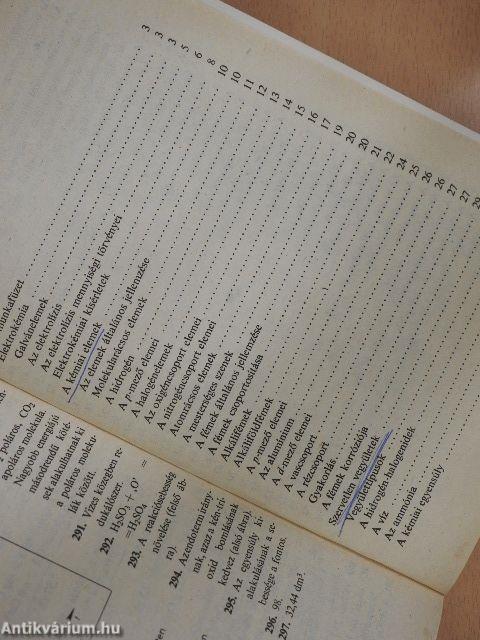 munkafüzet
Elektrokémia
Galvánelemek
Az elektrolízis
Az elektrolízis mennyiségi törvényei
Elektrokémiai kísérletek
A kémiai elemek
Az elemek általános jellemzése
Molekularácsos elemek
A hidrogén
A p-mező elemei
A halogénelemek
Az oxigéncsoport elemei
A nitrogéncsoport elemei
Atomrácsos elemek
A mesterséges szenek
A fémek általános jellemzése
A fémek csoportosítása
Alkálifémek
Alkáliföldfémek
A p-mező elemei
Az alumínium
A d-mező elemei
A vascsoport
A rézcsoport
Gyakorlás
A fémek korróziója
Szervetlen vegyületek
Vegyülettípusok
A hidrogén-halogenidek
A víz
Az ammónia
A kémiai egyensúly
3
3
3
5
6
8
10
10
11
12
13
14
15
16
17
19
20
20
21
22
24
25
26
26
27
27
29
poláros, CO2
apoláros molekula
Nagyobb energiájú
másodrendű köté-
sek alakulhatnak ki
a poláros moleku-
lák között.
291. Vizes közegben re-
dukálószer.
292. H2SO3 + O' =
= H2SO4
293. A reakciósebesség
növelése (felső áb-
ra).
294. Az endoterm irány-
nak, azaz a kén-tri-
oxid bomlásának
kedvez (alsó ábra).
295. Az egyensúly ki-
alakulásának a se-
bessége a fontos.
296. 98.
297. 32,44 dm³.
Antikvárium.hu